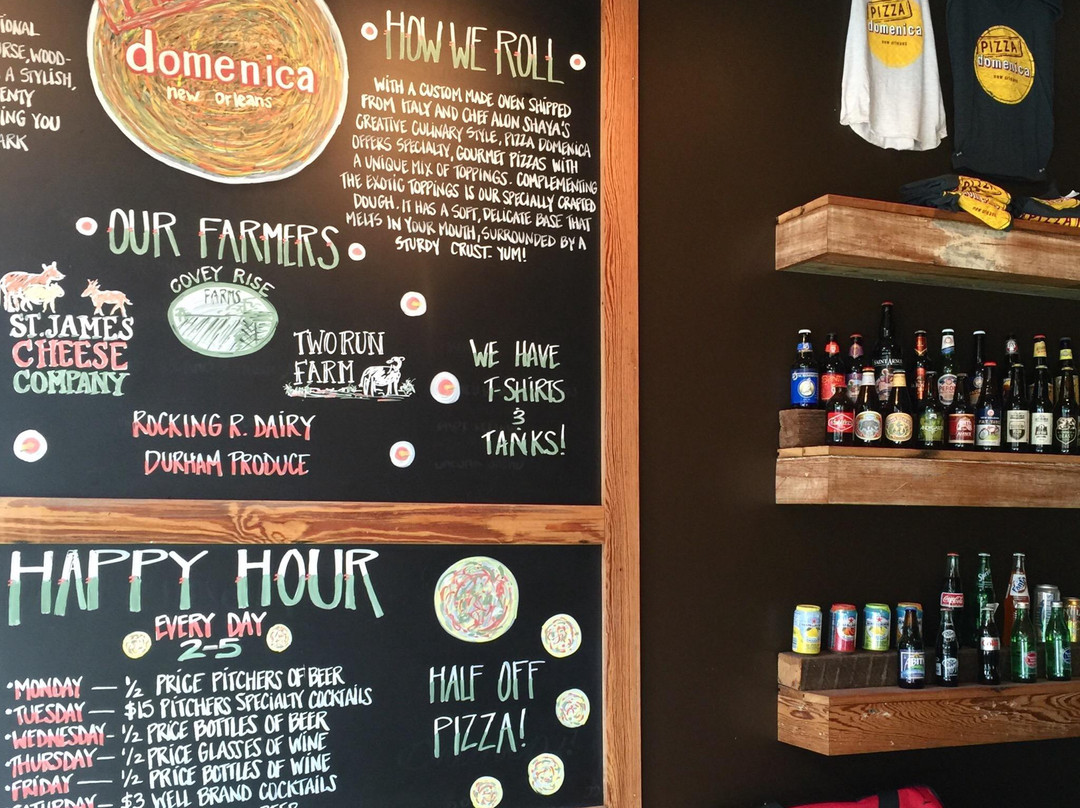 TIONAL
RSE, WOOD-
A STYLISH,
ENTY
ING YOU
ARK
PIZZA
domenica
new orleans
HOW WE ROLL
WITH A CUSTOM MADE OVEN SHIPPED
FROM ITALY AND CHEF ALON SHAYA'S
CREATIVE CULINARY STYLE, PIZZA DOMENICA
OFFERS SPECIALTY, GOURMET PIZZAS WITH
A UNIQUE MIX OF TOPPINGS. COMPLEMENTING
THE EXOTIC TOPPINGS IS OUR SPECIALLY CRAFTED
DOUGH. IT HAS A SOFT, DELICATE BASE THAT
MELTS IN YOUR MOUTH, SURROUNDED BY A
STURDY CRUST- YUM!
OUR FARMERS
ST. JAMES
CHEESE
COMPANY
COVEY RISE
FARMS
TWO RUN
FARM
ROCKING R. DAIRY
DURHAM PRODUCE
WE HAVE
T-SHIRTS
&
TANKS!
HAPPY HOUR
EVERY DAY
2-5
• MONDAY — 1/2 PRICE PITCHERS OF BEER
• TUESDAY — $15 PITCHERS SPECIALTY COCKTAILS
• WEDNESDAY - 1/2 PRICE BOTTLES OF BEER
• THURSDAY — 1/2 PRICE GLASSES OF WINE
• FRIDAY — 1/2 PRICE BOTTLES OF WINE
SATURDAY — $3 WELL BRAND COCKTAILS
BEER
HALF OFF
PIZZA!
PIZZA
domenica
new orleans
PIZZA
domenica
new orleans
PIZZA
Coca-Cola
ABITA